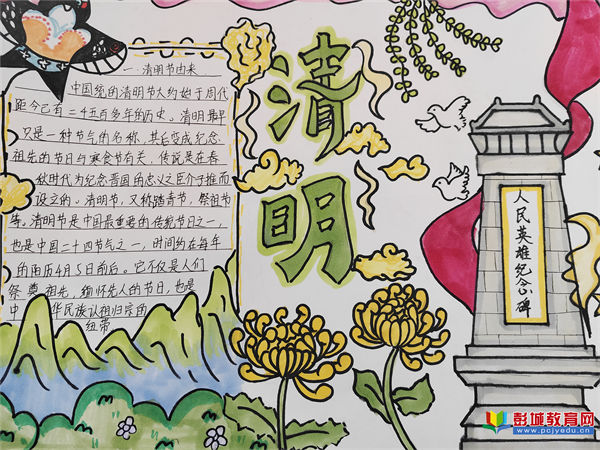 一、清明节由来
中国统的清明节大约始于周代
距今己有二千五百多年的历史。清明最早
只是一种节气的名称,其长变成纪念
祖先的节日与寒食节有关,传说是在春
秋时代为纪念晋国的忠义之臣介子推而
设立的。清明节,又称踏青节,祭祖节
等。清明节是中国最重要的传统节日之一,
也是中国二十四节气之一,时间约在每年
的阳历4月5日前后。它不仅是人们
祭尊祖先,缅怀先人的节日,也是
中华民族认祖归宗的
纽带
清明
人民英雄纪念碑
彭城教育网
www.pcjyedu.cn